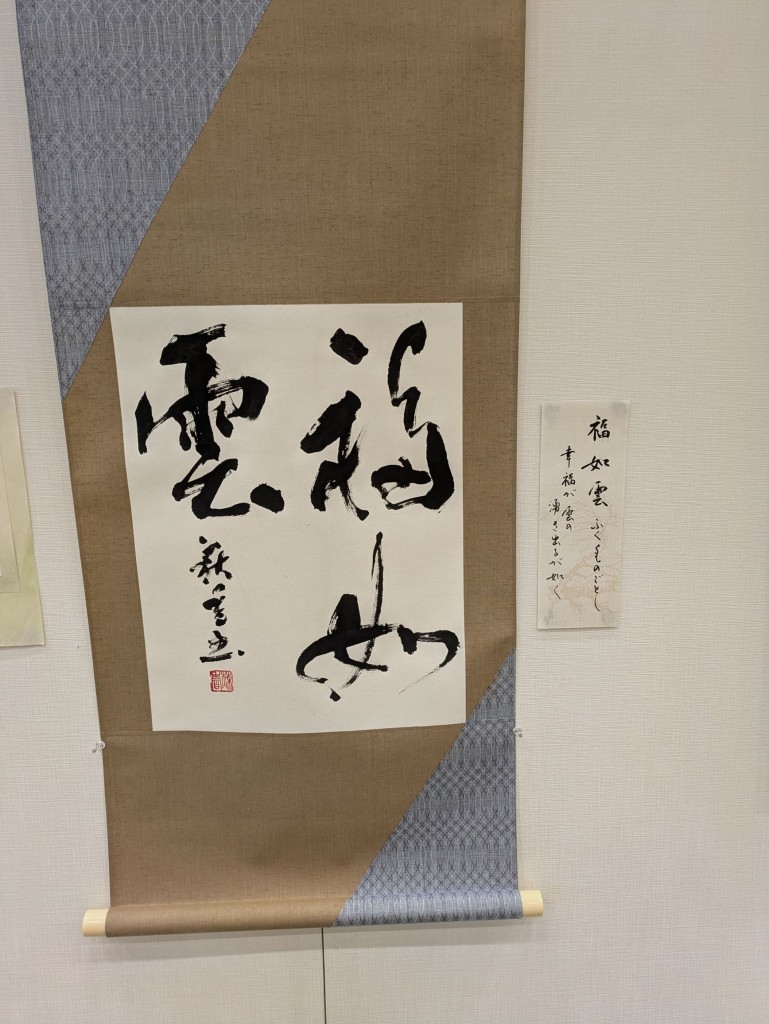 福如
雲
萩香書
福如雲 ふくくものごとし
幸福が雲の
湧き出るが如く